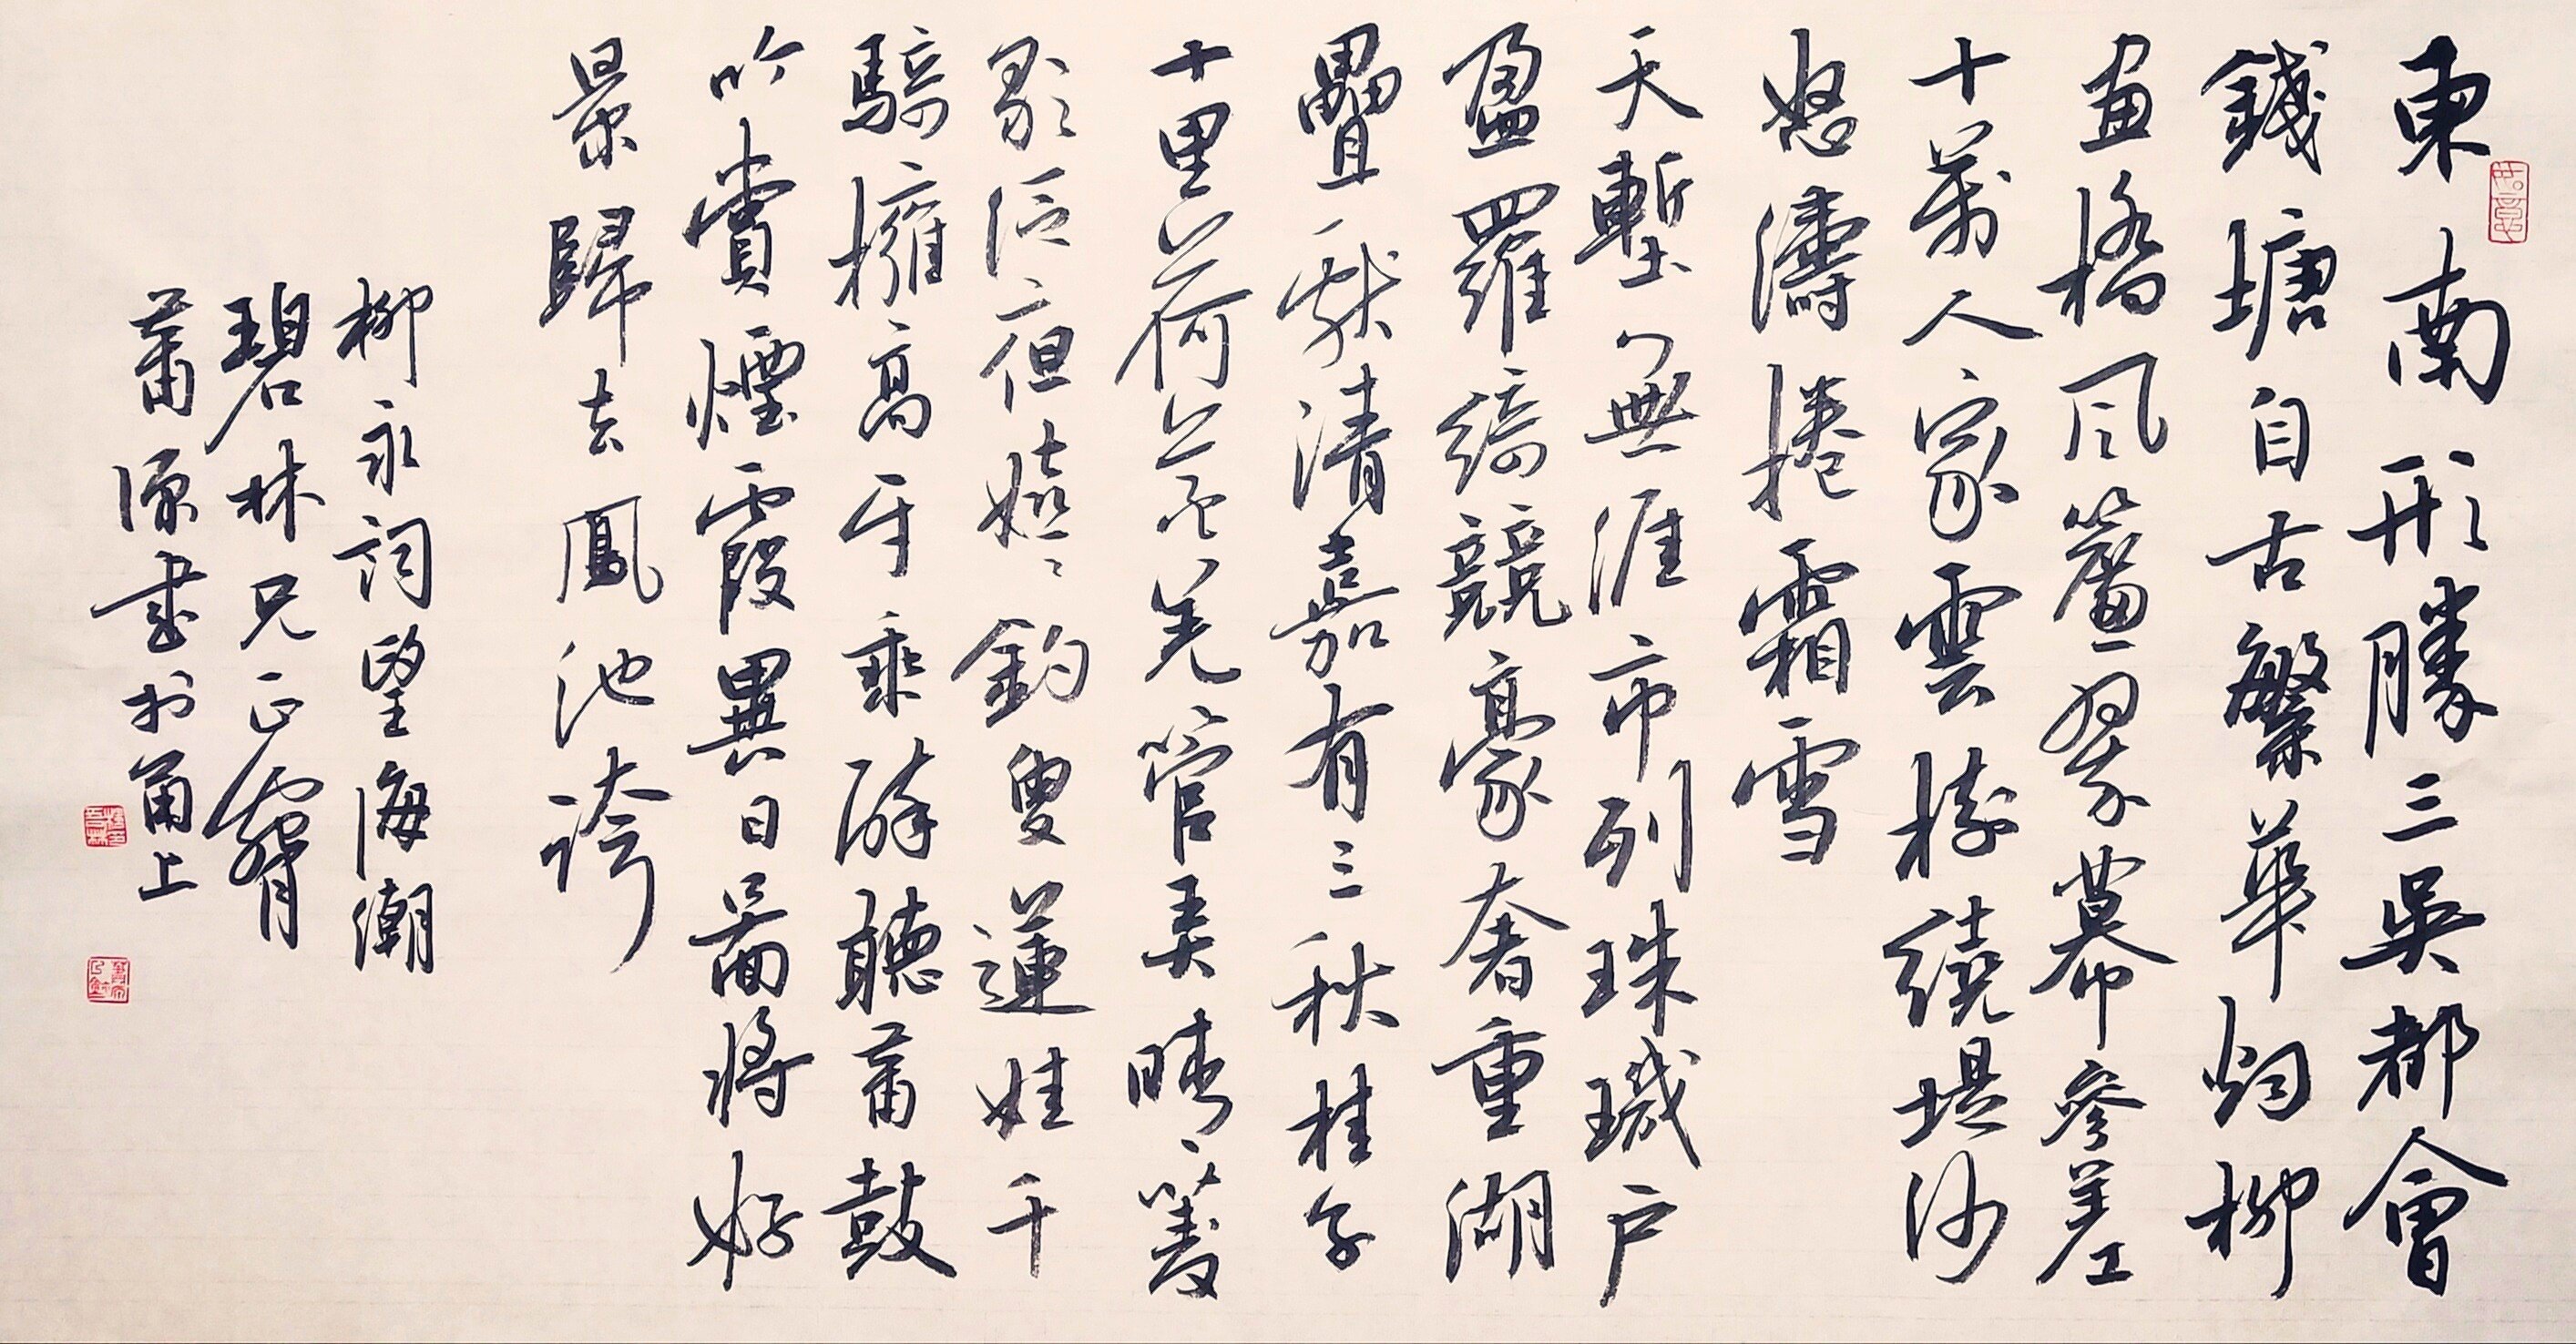 東南形勝三吳都會
錢塘自古繁華烟柳
畫橋風簾翠幕參差
十萬人家雲樹繞堤沙
怒濤捲霜雪
天塹無涯市列珠璣户
盈羅綺競豪奢重湖
疊巘清嘉有三秋桂子
十里荷花羌管弄晴菱
歌泛夜嬉〻釣叟蓮娃千
騎擁高牙乘醉聽蕭鼓
吟賞煙霞異日圖將好
景歸去鳳池誇
柳永詞望海潮
碧林兄正
蕭源書於甬上